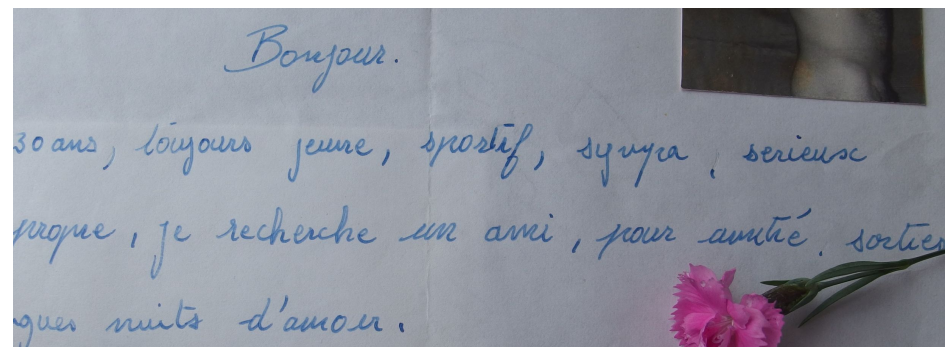 Bonjour.
30 ans, toujours jeune, sportif, sympa, serieux
propre, je recherche un ami, pour amitié, sorties
gues nuits d'amour.